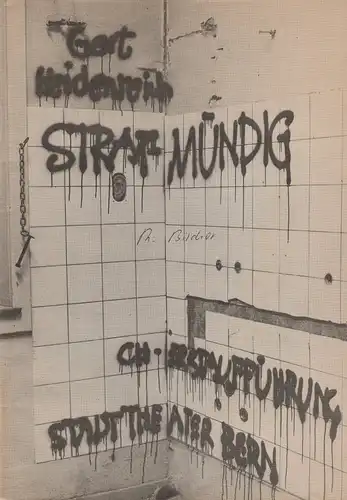 Gert
Heidenreich
STRAF- MÜNDIG
CH - ERSTAUFFÜHRUNG
STADTTHEATER BERN